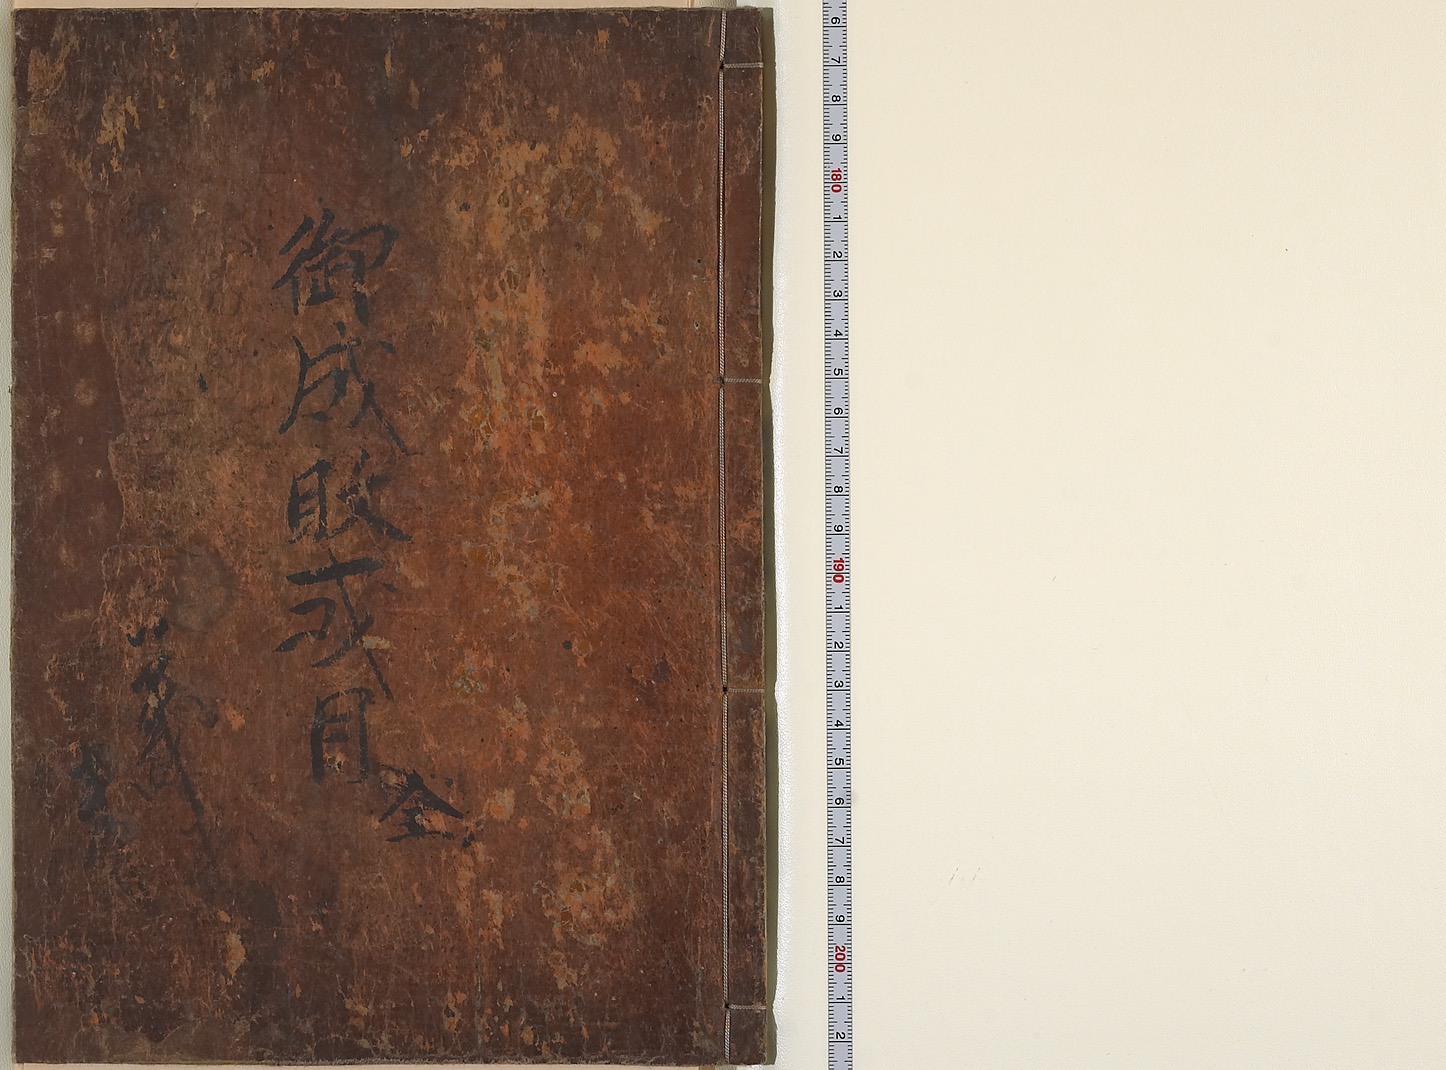 御成敗式目
全
6 7 8 9 180 1 2 3 4 5 6 7 8 9 190 1 2 3 4 5 6 7 8 9 200 1 2